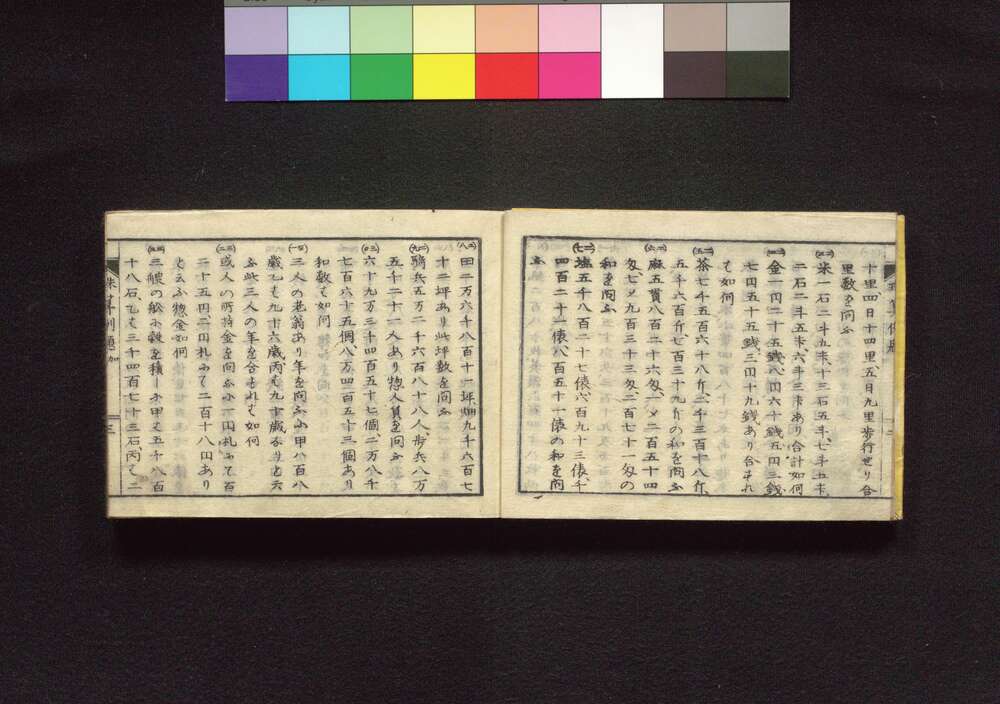 十里四日十四里五日九里歩行せり合
里数を問ふ
(二三)米一石二斗九升、十三石五斗、七斗五升、
二石二斗五升、六斗三升あり合計如何
(二四)金一円二十五銭、八円六十銭、五円三銭、
七円五十五銭、三円十九銭あり合すれ
て如何
(二五)茶七千五百六十八斤、二千三百十八斤、
五千六百斤、七百三十九斤の和を問ふ
(二六)麻五貫八百二十六匁、一メ二百五十四
匁、七メ九百三十三匁、二百七十一匁の
和を問ふ
(二七)塩五千八百二十七俵、六百九十三俵、千
四百二十六俵、八百五十一俵の和を問
ふ
(二八)田二万六千八百十一坪、畑九千六百七
十二坪あり此坪数を問ふ
(二九)騎兵五万二千六百八十八人、歩兵八万
五千二十一人あり惣人員を問ふ
(三〇)六十九万三千四百五十七個、二万八千
七百六十五個、八万四百五十三個あり
和数も如何
(三一)三人の老翁あり年を問ふに甲ハ百八
歳乙も九十六歳丙も九十歳なりと云
ふ此三人の年を合すれも如何
(三二)或人の所持金を問ふに一円札にて百
二十五円二円札にて二百十八円あり
と云ふ惣金如何
(三三)三艘の船に穀を積し小甲も五千八百
十八石乙も三千四百七十三石丙も二
珠算例題 加
三